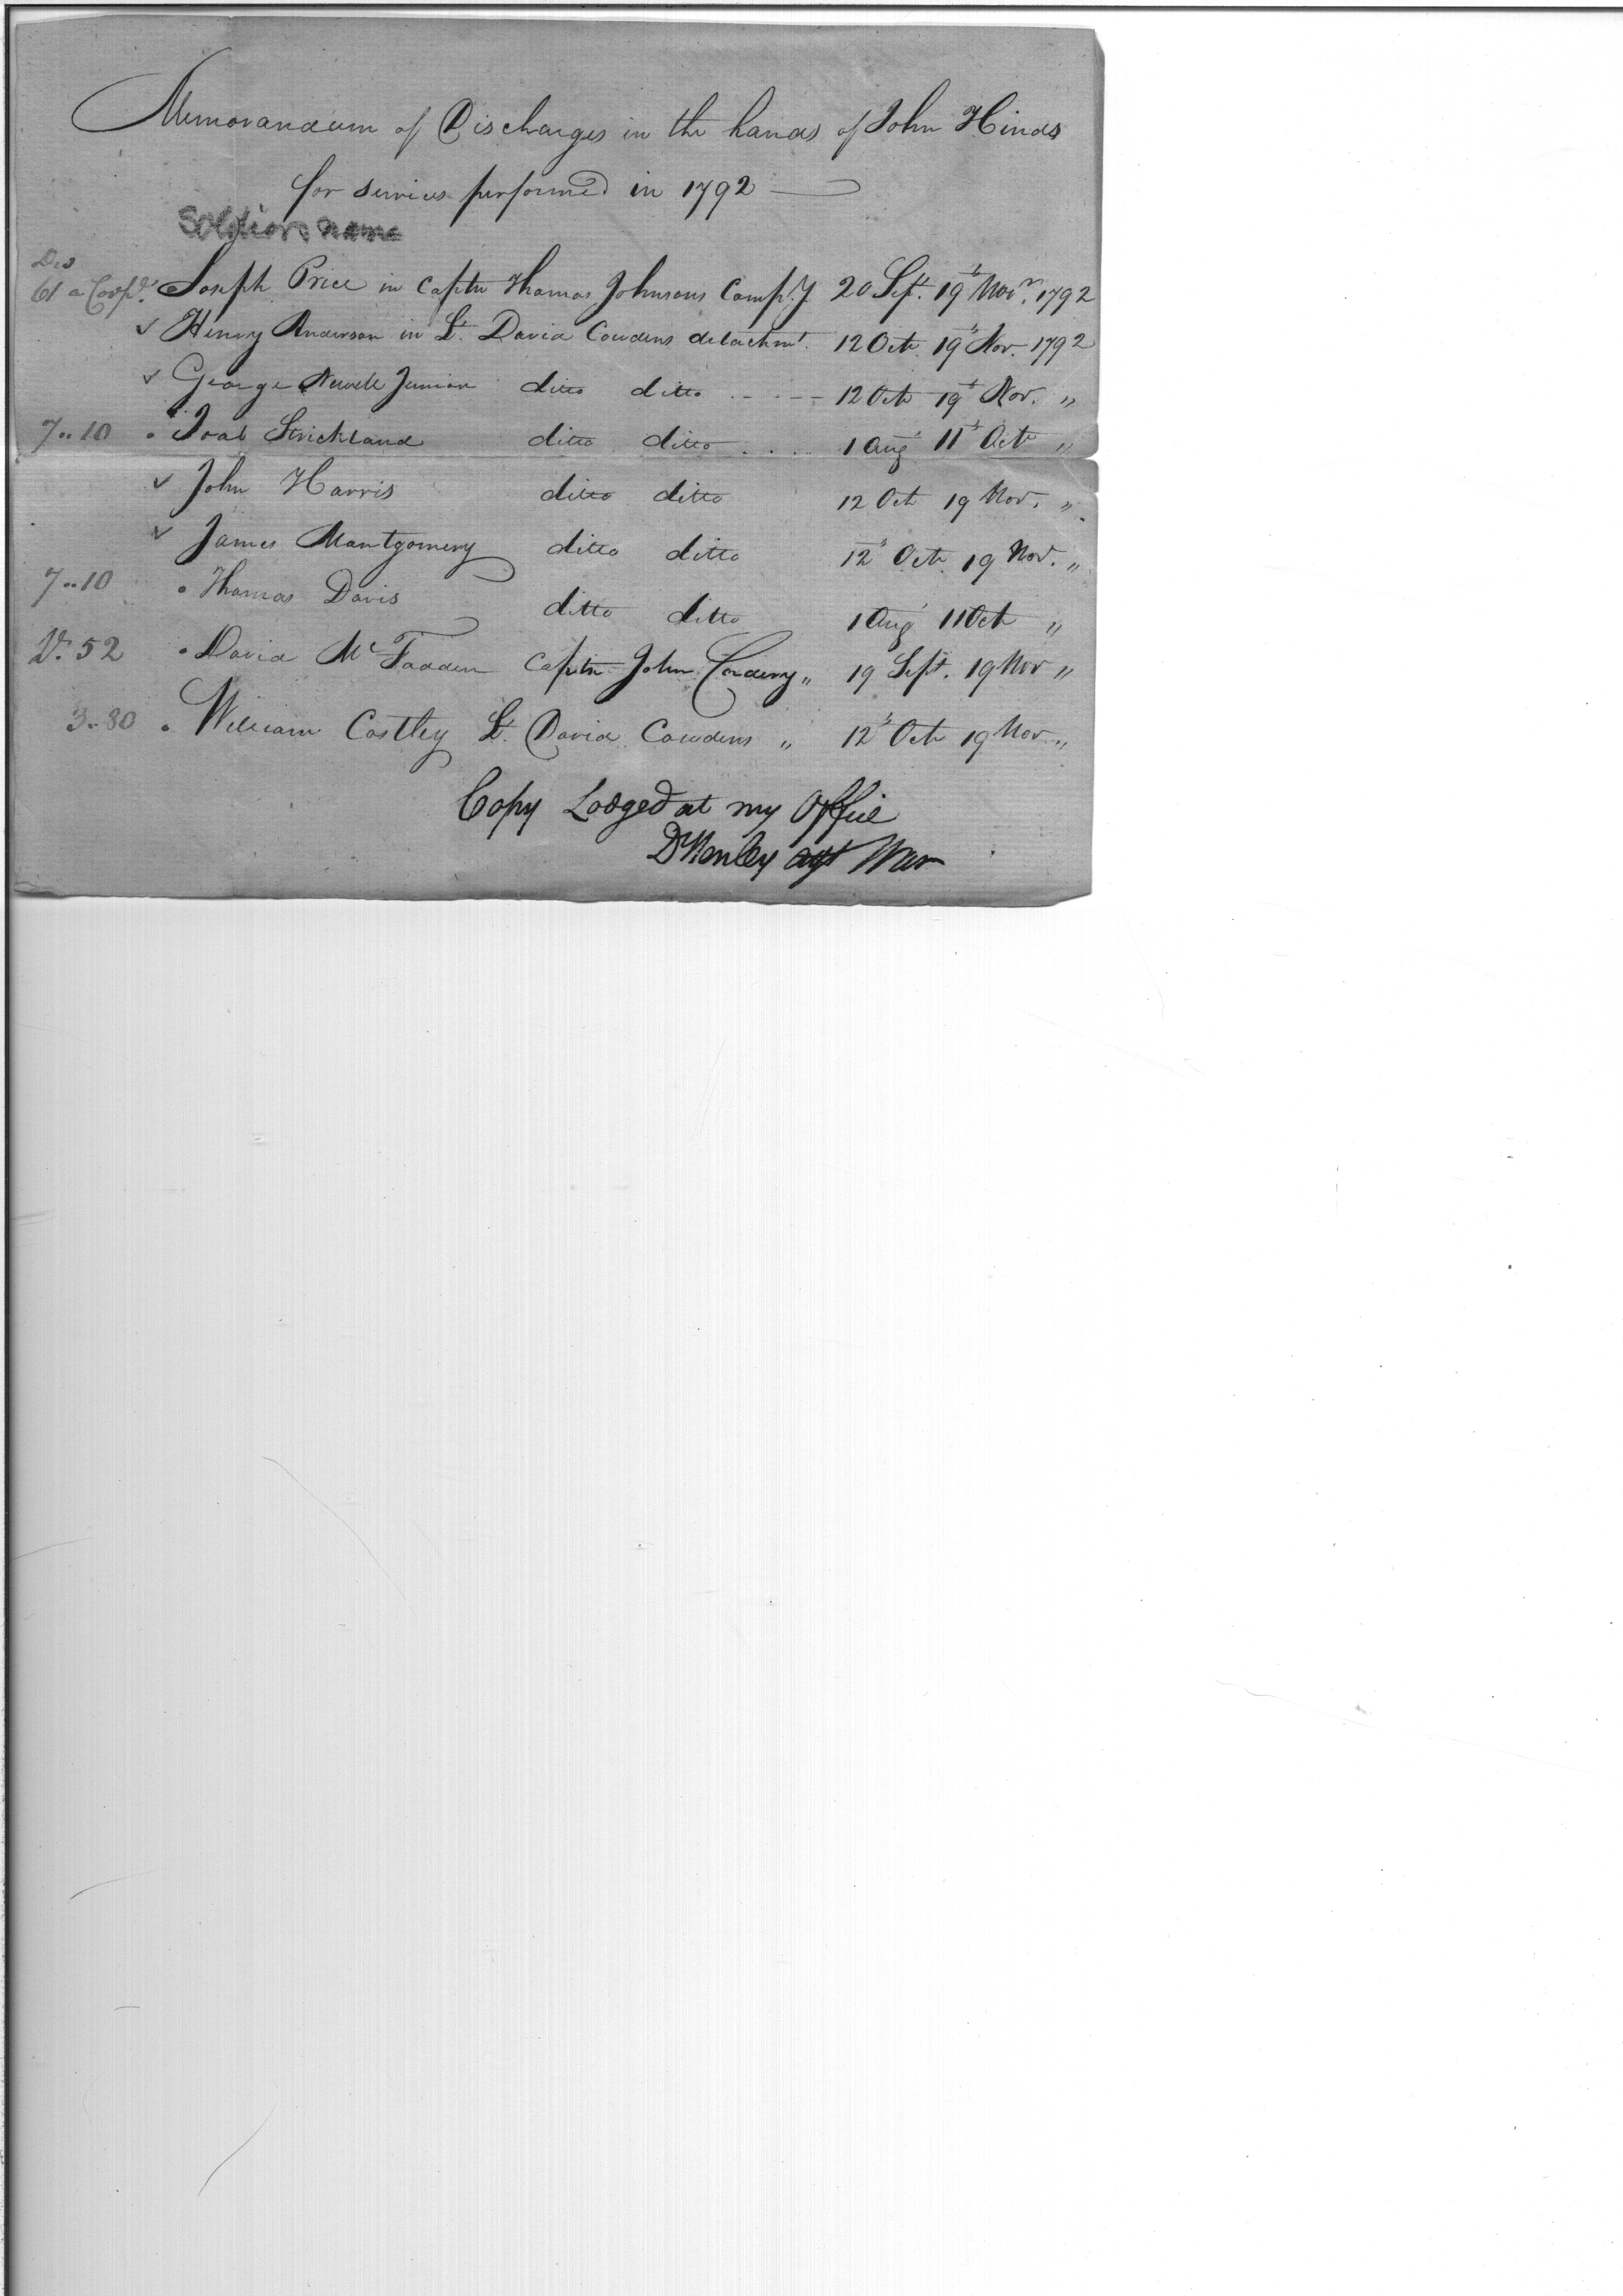 Memorandum of Discharges in the hands of John Hinds
for services performed in 1792
Soldiers name
61 a Corpl. Joseph Price in Captn Thomas Johnsons Compy 20 Sept. 19t Novr. 1792
Henry Anderson in Lt. David Cowdens detachmt. 12 Oct. 19t Nov. 1792
George Newell Junior ditto ditto ..... 12 Oct 19t Nov. "
7..10 Joab Strickland ditto ditto .... 1 Aug 11t Oct "
John Harris ditto ditto 12 Oct 19 Nov. "
James Montgomery ditto ditto 12t Oct. 19 Nov. "
7..10 Thomas Davis ditto ditto 1 Aug 11 Oct "
52 David McFadden Captn John " 19 Sept. 19 Nov "
3..80 William Costley Lt. David Cowdens " 12t Oct 19 Nov "
Copy Lodged at my Office
D Henley agt War